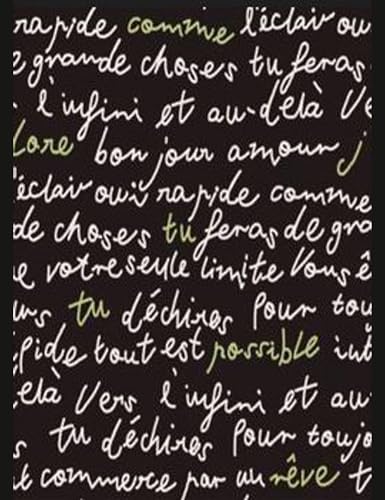 rapide comme l'éclair ou
grande choses tu feras
l'infini et au-delà Ve
lore bonjour amour j
éclair ouiv rapide comme
de choses tu feras de gra
e votre seule limite Vous ê
urs tu déchires pour tou
pide tout est possible int
elà Vers l'infini et au
s tu déchires pour toujo
t commerce par un rêve t